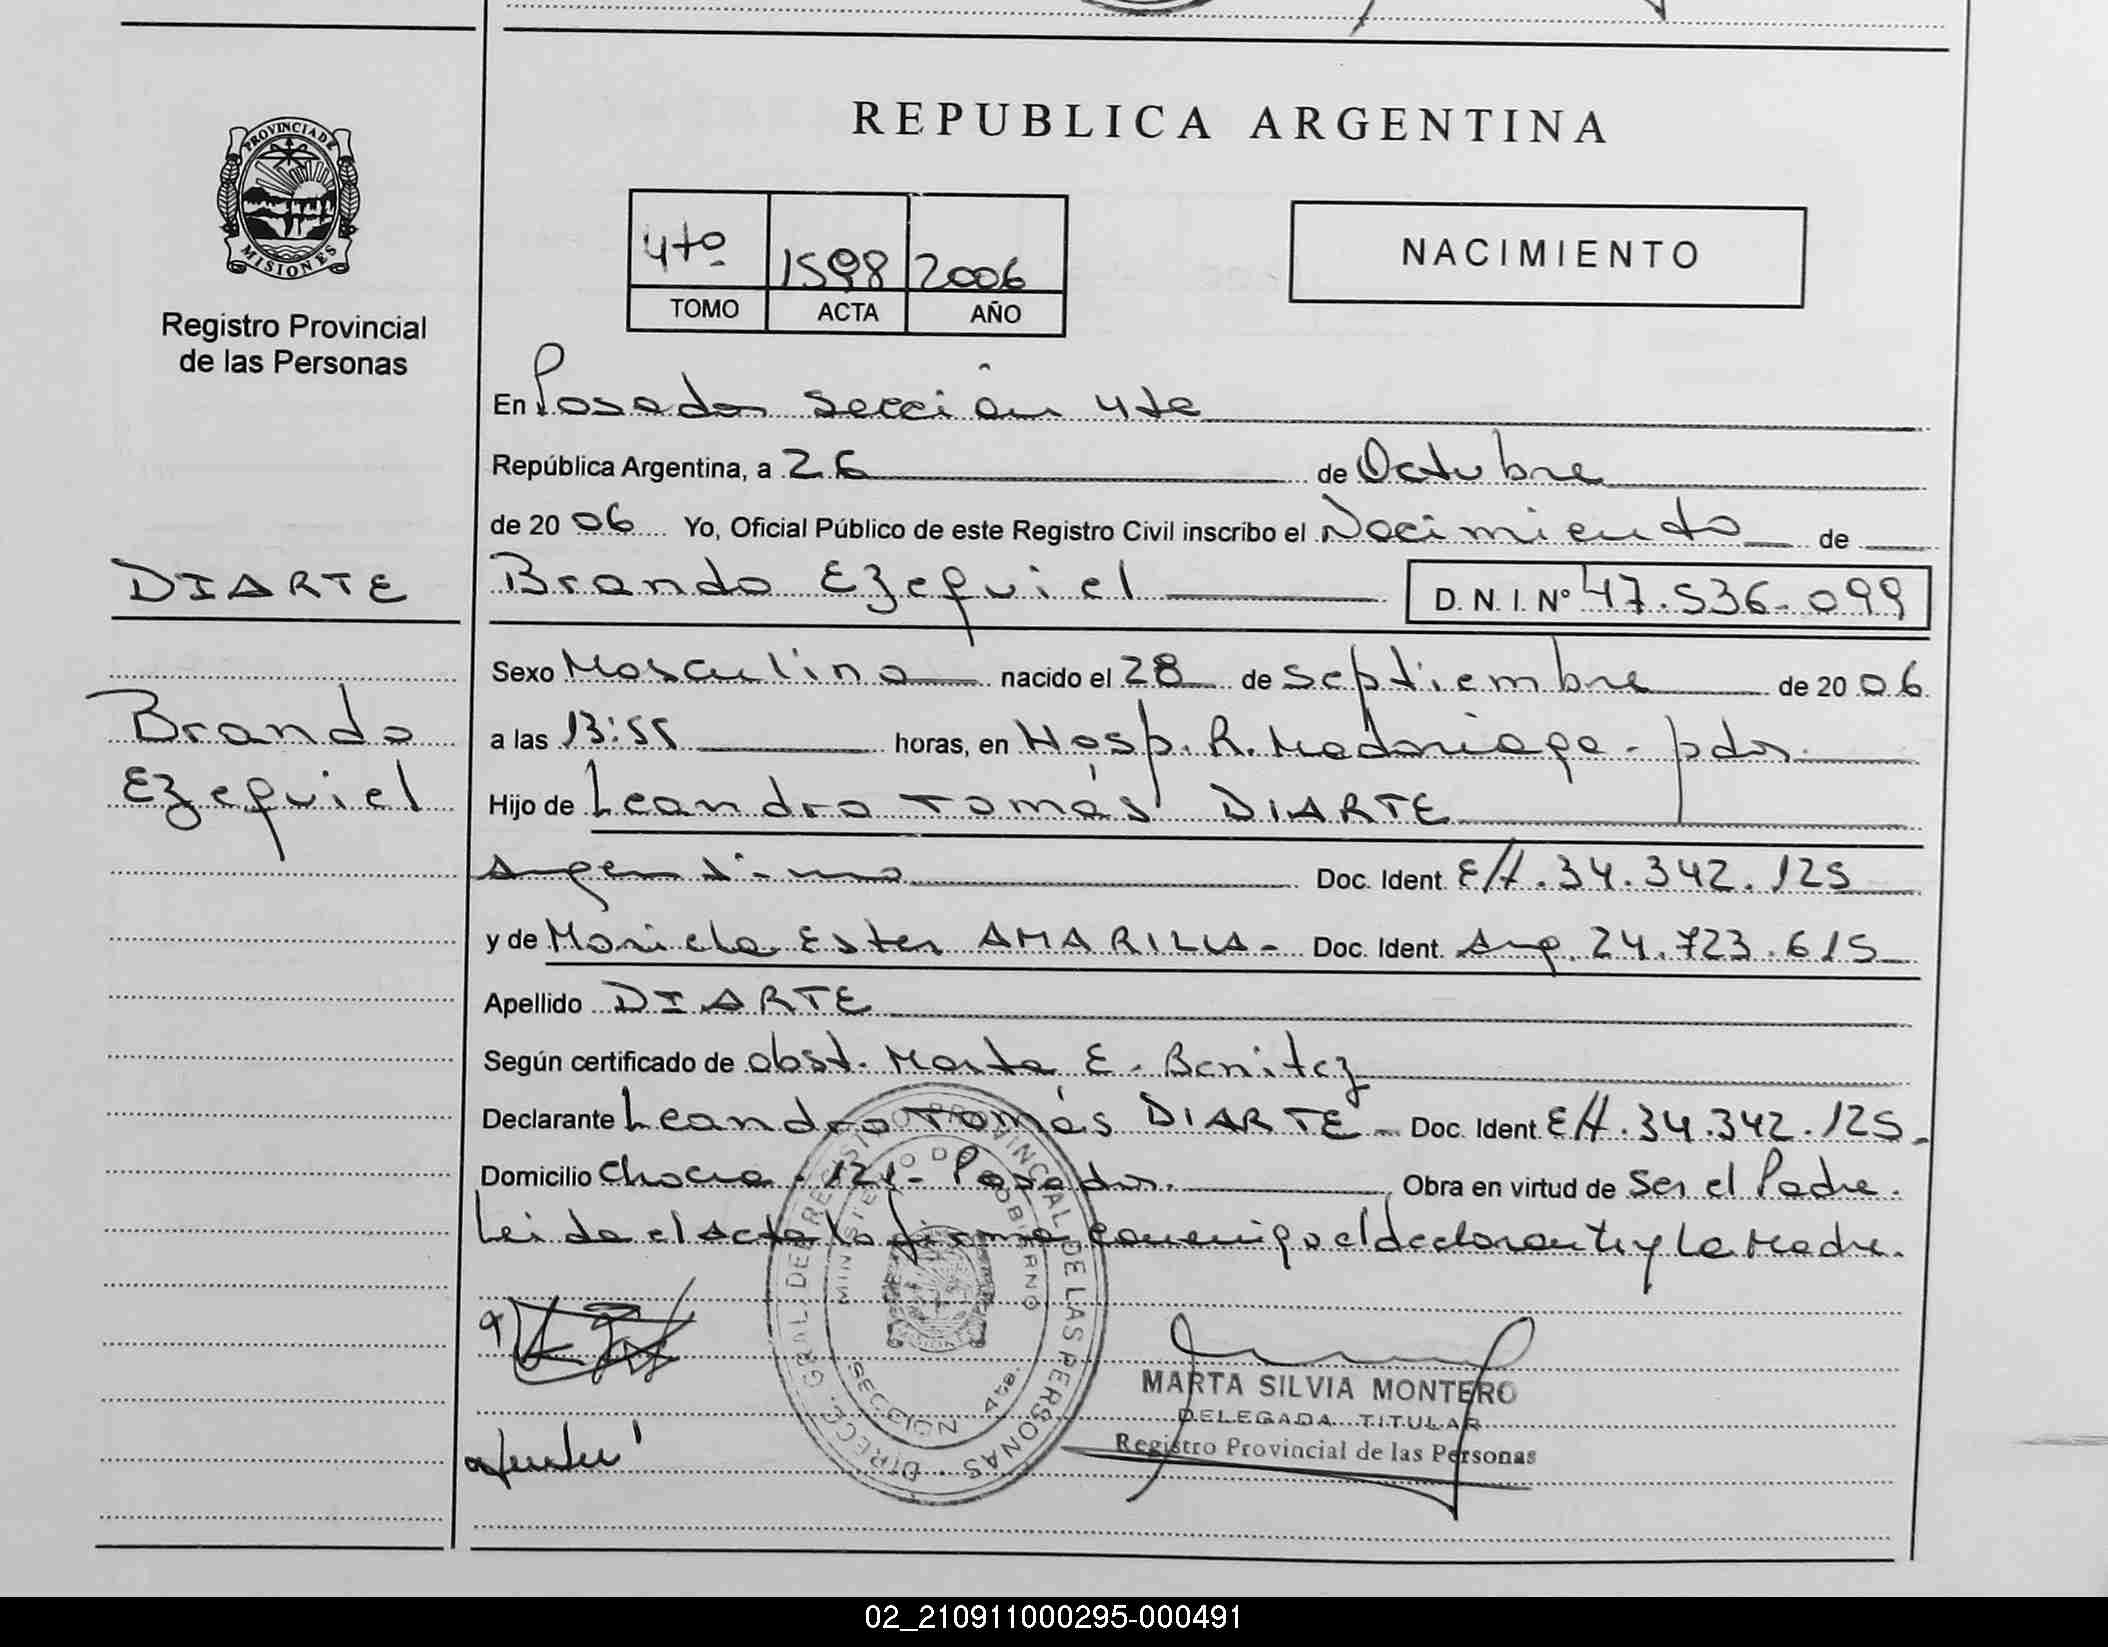 PROVINCIA DE
MISIONES
Registro Provincial
de las Personas
DIARTE
Brando
Ezequiel
REPUBLICA ARGENTINA
4to 1598 2006
TOMO ACTA AÑO
NACIMIENTO
En Posadas sección 4ta
República Argentina, a 26 de Octubre
de 20 06 Yo, Oficial Público de este Registro Civil inscribo el Nacimiento de
Brando Ezequiel D. N. I. Nº 47.536.099
Sexo Masculino nacido el 28 de septiembre de 20 06
a las 13:55 horas, en Hosp. R. Madariaga - pdas.
Hijo de Leandro Tomás DIARTE
Argentino Doc. Ident. E/t. 34.342.125
y de Mariela Ester AMARILLA - Doc. Ident. Arg. 24.723.615
Apellido DIARTE
Según certificado de obst. Marta E. Benitez
Declarante Leandro Tomás DIARTE - Doc. Ident. E/t. 34.342.125 -
Domicilio Chacra 121 - Posadas. Obra en virtud de ser el Padre.
Leida el acta la firma conmigo el declarante y La Madre.
DIRECC. GRAL. DEL REGISTRO PROVINCIAL DE LAS PERSONAS
MINISTERIO DE GOBIERNO
SECCION 4ta.
MARTA SILVIA MONTERO
DELEGADA TITULAR
Registro Provincial de las Personas
02_210911000295-000491